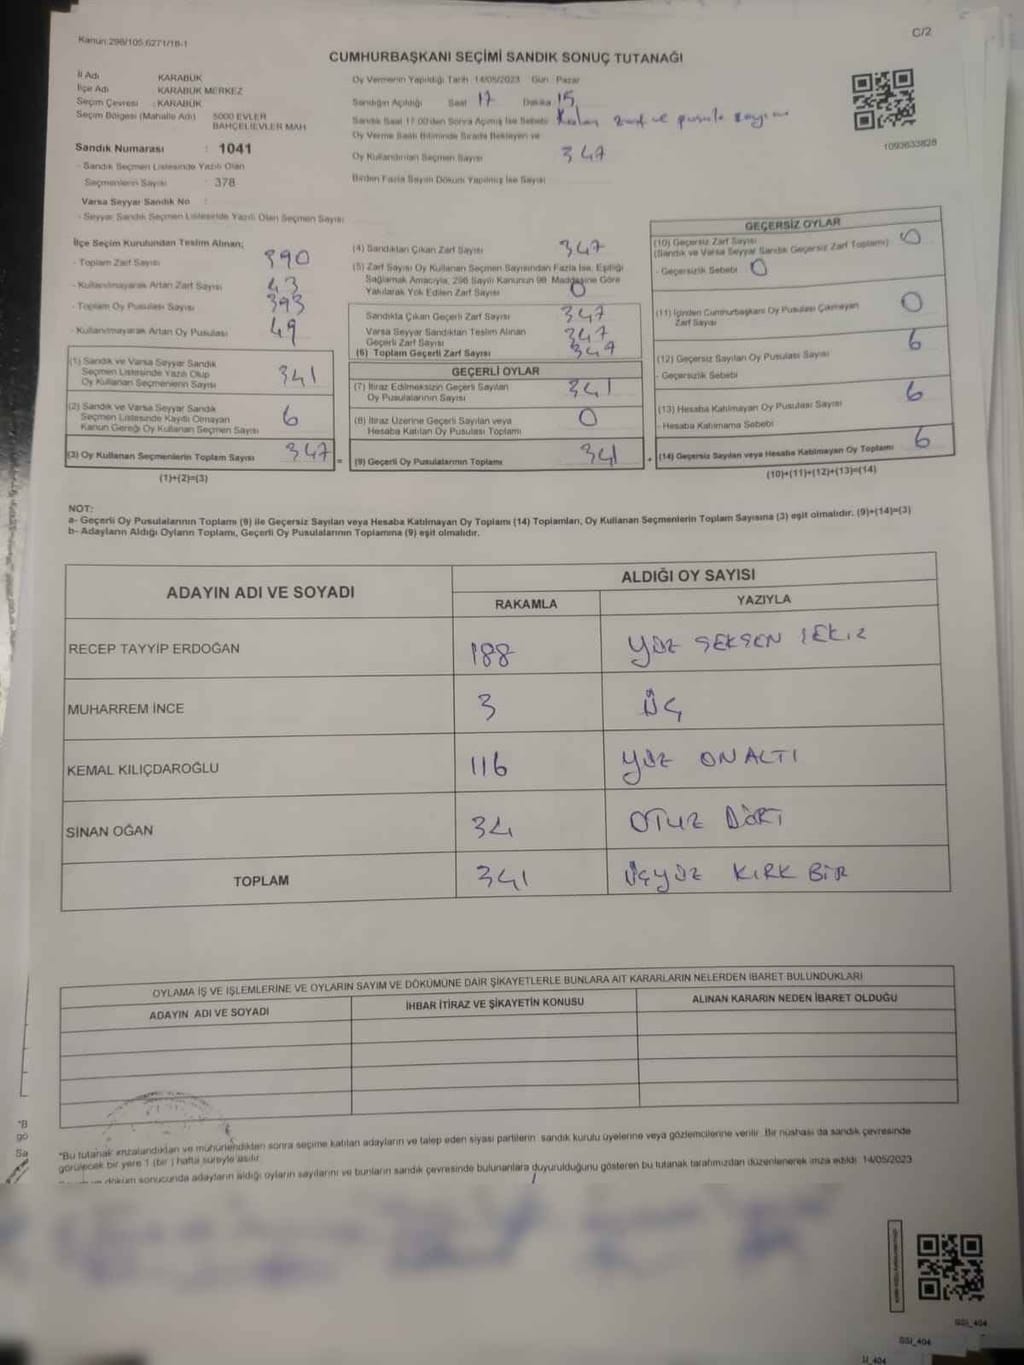 Kanun:298/105,6271/18-1
C/2
CUMHURBAŞKANI SEÇİMİ SANDIK SONUÇ TUTANAĞI
İl Adı KARABÜK
İlçe Adı KARABÜK MERKEZ
Seçim Çevresi : KARABÜK
Seçim Bölgesi (Mahalle Adı) 5000 EVLER
BAHÇELİEVLER MAH.
Sandık Numarası : 1041
- Sandık Seçmen Listesinde Yazılı Olan
Seçmenlerin Sayısı : 378
Varsa Seyyar Sandık No :
- Seyyar Sandık Seçmen Listesinde Yazılı Olan Seçmen Sayısı:
Oy Vermenin Yapıldığı Tarih : 14/05/2023 Gün : Pazar
Sandığın Açıldığı Saat 17 Dakika 15
Sandık Saat 17:00'den Sonra Açılmış İse Sebebi Kalan zarf ve pusula sayımı
Oy Verme Saati Bitiminde Sırada Bekleyen ve
Oy Kullandırılan Seçmen Sayısı 347
Birden Fazla Sayım Dökümü Yapılmış İse Sayısı
1093633828
İlçe Seçim Kurulundan Teslim Alınan;
- Toplam Zarf Sayısı 390
- Kullanılmayarak Artan Zarf Sayısı 43
- Toplam Oy Pusulası Sayısı 393
- Kullanılmayarak Artan Oy Pusulası 49
(1) Sandık ve Varsa Seyyar Sandık
Seçmen Listesinde Yazılı Olup
Oy Kullanan Seçmenlerin Sayısı 341
(2) Sandık ve Varsa Seyyar Sandık
Seçmen Listesinde Kayıtlı Olmayan
Kanun Gereği Oy Kullanan Seçmen Sayısı 6
(3) Oy Kullanan Seçmenlerin Toplam Sayısı 347 =
(1)+(2)=(3)
(4) Sandıktan Çıkan Zarf Sayısı 347
(5) Zarf Sayısı Oy Kullanan Seçmen Sayısından Fazla İse, Eşitliği
Sağlamak Amacıyla, 298 Sayılı Kanunun 98. Maddesine Göre
Yakılarak Yok Edilen Zarf Sayısı 0
Sandıkta Çıkan Geçerli Zarf Sayısı 347
Varsa Seyyar Sandıktan Teslim Alınan
Geçerli Zarf Sayısı 347
(6) Toplam Geçerli Zarf Sayısı 347
GEÇERLİ OYLAR
(7) İtiraz Edilmeksizin Geçerli Sayılan
Oy Pusulalarının Sayısı 341
(8) İtiraz Üzerine Geçerli Sayılan veya
Hesaba Katılan Oy Pusulası Toplamı 0
(9) Geçerli Oy Pusulalarının Toplamı 341 +
GEÇERSİZ OYLAR
(10) Geçersiz Zarf Sayısı 0
(Sandık ve Varsa Seyyar Sandık Geçersiz Zarf Toplamı)
- Geçersizlik Sebebi 0
(11) İçinden Cumhurbaşkanı Oy Pusulası Çıkmayan
Zarf Sayısı 0
(12) Geçersiz Sayılan Oy Pusulası Sayısı 6
- Geçersizlik Sebebi
(13) Hesaba Katılmayan Oy Pusulası Sayısı 6
- Hesaba Katılmama Sebebi
(14) Geçersiz Sayılan veya Hesaba Katılmayan Oy Toplamı 6
(10)+(11)+(12)+(13)=(14)
NOT:
a- Geçerli Oy Pusulalarının Toplamı (9) ile Geçersiz Sayılan veya Hesaba Katılmayan Oy Toplamı (14) Toplamları, Oy Kullanan Seçmenlerin Toplam Sayısına (3) eşit olmalıdır. (9)+(14)=(3)
b- Adayların Aldığı Oyların Toplamı, Geçerli Oy Pusulalarının Toplamına (9) eşit olmalıdır.
ADAYIN ADI VE SOYADI
ALDIĞI OY SAYISI
RAKAMLA YAZIYLA
RECEP TAYYİP ERDOĞAN 188 YÜZ SEKSEN SEKİZ
MUHARREM İNCE 3 ÜÇ
KEMAL KILIÇDAROĞLU 116 YÜZ ON ALTI
SİNAN OĞAN 34 OTUZ DÖRT
TOPLAM 341 ÜÇYÜZ KIRK BİR
OYLAMA İŞ VE İŞLEMLERİNE VE OYLARIN SAYIM VE DÖKÜMÜNE DAİR ŞİKAYETLERLE BUNLARA AİT KARARLARIN NELERDEN İBARET BULUNDUKLARI
ADAYIN ADI VE SOYADI İHBAR İTİRAZ VE ŞİKAYETİN KONUSU ALINAN KARARIN NEDEN İBARET OLDUĞU
"Bu tutanak imzalandıktan ve mühürlendikten sonra seçime katılan adayların ve talep eden siyasi partilerin sandık kurulu üyelerine veya gözlemcilerine verilir. Bir nüshası da sandık çevresinde
görülecek bir yere 1 (bir) hafta süreyle asılır.
döküm sonucunda adayların aldığı oyların sayılarını ve bunların sandık çevresinde bulunanlara duyurulduğunu gösteren bu tutanak tarafımızdan düzenlenerek imza edildi. 14/05/2023
"B
gö
Sa
GSI_404
GSI_404
LI_404